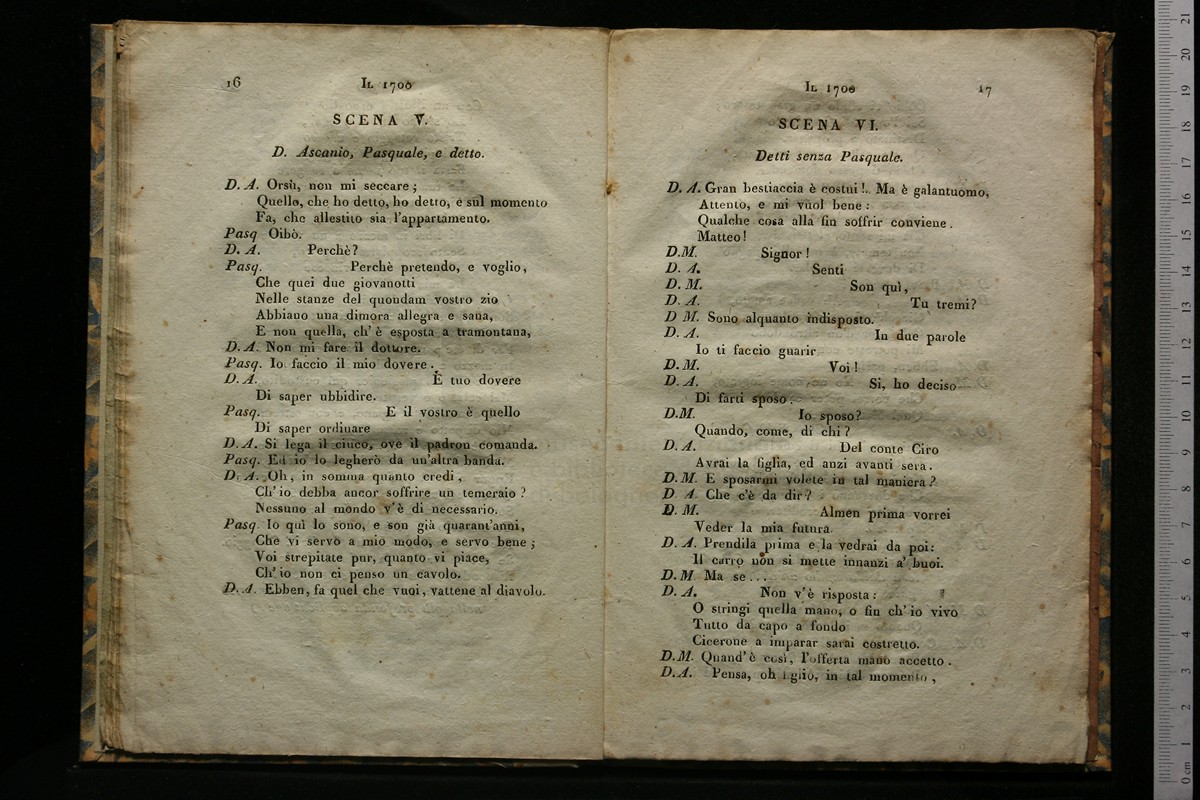 16
IL 1700
SCENA V.
D. Ascanio, Pasquale, e detto.
D. A. Orsù, non mi seccare;
Quello, che ho detto, ho detto, e sul momento
Fa, che allestito sia l'appartamento.
Pasq Oibò.
D. A. Perchè?
Pasq. Perchè pretendo, e voglio,
Che quei due giovanotti
Nelle stanze del quondam vostro zio
Abbiano una dimora allegra e sana,
E non quella, ch'è esposta a tramontana,
D. A. Non mi fare il dottore.
Pasq. Io faccio il mio dovere.
D. A. E tuo dovere
Di saper ubbidire.
Pasq. E il vostro è quello
Di saper ordinare
D. A. Si lega il ciuco, ove il padron comanda.
Pasq. Ed io lo legherò da un'altra banda.
D. A. Oh, in somma quanto credi,
Ch'io debba ancor soffrire un temeraio?
Nessuno al mondo v'è di necessario.
Pasq. Io quì lo sono, e son già quarant'anni,
Che vi servo a mio modo, e servo bene;
Voi strepitate pur, quanto vi piace,
Ch'io non ci penso un cavolo.
D. A. Ebben, fa quel che vuoi, vattene al diavolo.
IL 1700
17
SCENA VI.
Detti senza Pasquale.
D. A. Gran bestiaccia è costui!.. Ma è galantuomo,
Attento, e mi vuol bene:
Qualche cosa alla fin soffrir conviene.
Matteo!
D.M. Signor!
D. A. Senti
D. M. Son quì,
D. A. Tu tremi?
D M. Sono alquanto indisposto.
D. A. In due parole
Io ti faccio guarir
D. M. Voi!
D. A. Si, ho deciso
Di farti sposo:
D.M. Io sposo?
Quando, come, di chi?
D. A. Del conte Ciro
Avrai la figlia, ed anzi avanti sera.
D. M. E sposarmi volete in tal maniera?
D A. Che c'è da dir?
D. M. Almen prima vorrei
Veder la mia futura
D. A. Prendila prima e la vedrai da poi:
Il carro non si mette innanzi a' buoi.
D. M Ma se...
D. A. Non v'è risposta:
O stringi quella mano, o fin ch'io vivo
Tutto da capo a fondo
Cicerone a imparar sarai costretto.
D.M. Quand'è così, l'offerta mano accetto.
D. A. Pensa, oh figlio, in tal momento,